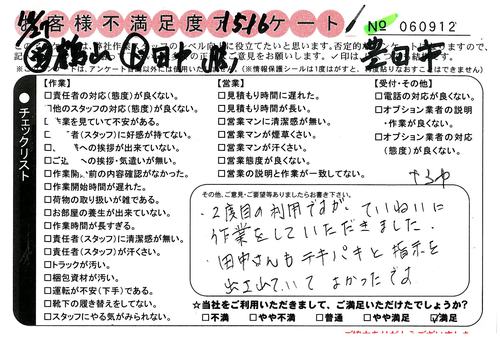 お客様不満足度アンケート
1516
No 060912
豊田市
【作業】
□責任者の対応(態度)が良くない。
□他のスタッフの対応(態度)が良くない。
作業を見ていて不安がある。
者(スタッフ)に好感が持てない。
への挨拶が出来ていない。
の挨拶・気遣いが無い。
□作業開始時間が遅れた。
□荷物の取り扱いが雑である。
□お部屋の養生が出来ていない。
□作業時間が長すぎる。
□責任者(スタッフ)に清潔感が無い。
□責任者(スタッフ)が汗くさい。
□トラックが汚い。
□梱包資材が汚い。
□運転が不安(下手)である。
□靴下の履き替えをしてない。
□スタッフにやる気がみられない。
【営業】
□見積もり時間に遅れた。
□見積もり時間が長い。
□営業マンに清潔感が無い。
□営業マンが煙草くさい。
□営業マンが汗くさい。
□営業態度が良くない。
□営業の説明と作業が一致してない。
【受付・その他】
□電話の対応が良くない。
□オプション業者の説明
・作業が良くない。
□オプション業者の対応
(態度)が良くない。
チェックリスト
その他、ご意見・ご要望等ありましたらお書き下さい。
・2度目の利用ですが、ていねいに
作業をしていただきました。
・田中さんもテキパキと指示を
出されていて よかったです
☆当社をご利用いただきまして、ご満足いただけたでしょうか?
□不満 □やや不満 □普通 □やや満足 ☑満足